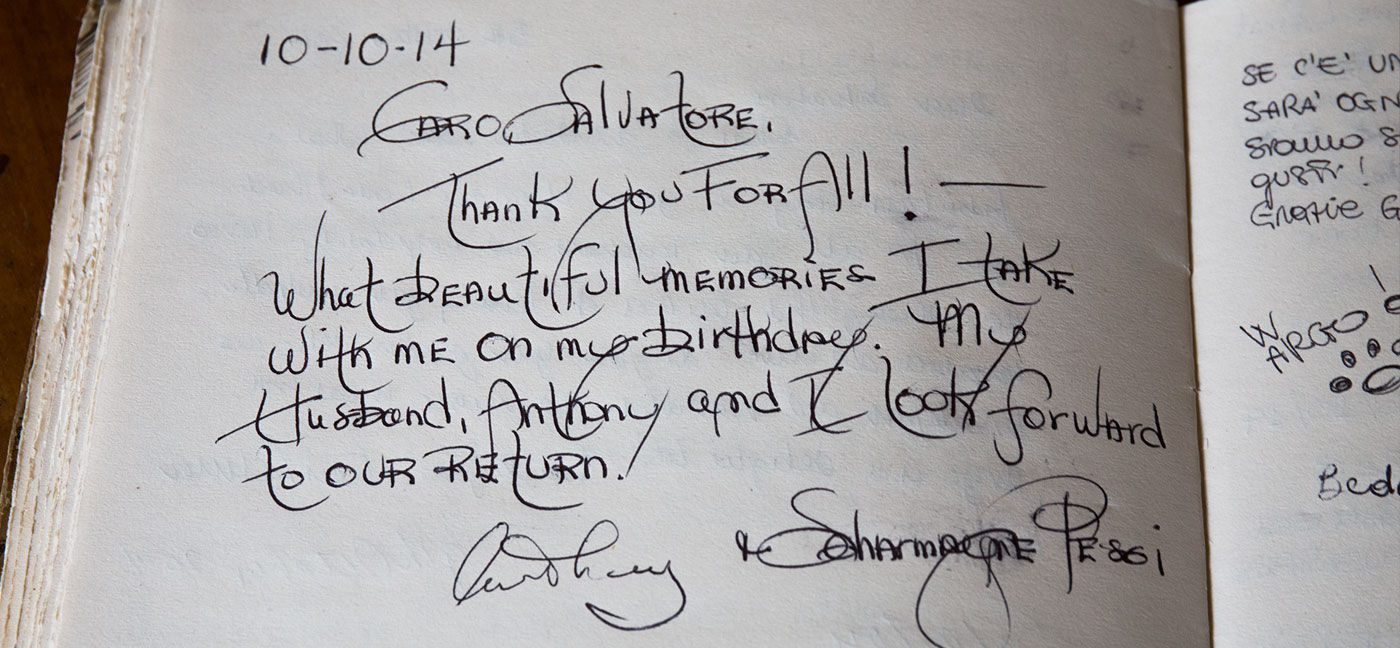 10-10-14
Caro Salvatore,
Thank you For All! —
What beautiful memories I take
with me on my birthday. My
Husband, Anthony and I look forward
to our return!
Anthony & Sharmagne Pessi
SE C'E' UN
SARA' OGN
S
GUSTI!
Grazie G
W
ARGO
Bed